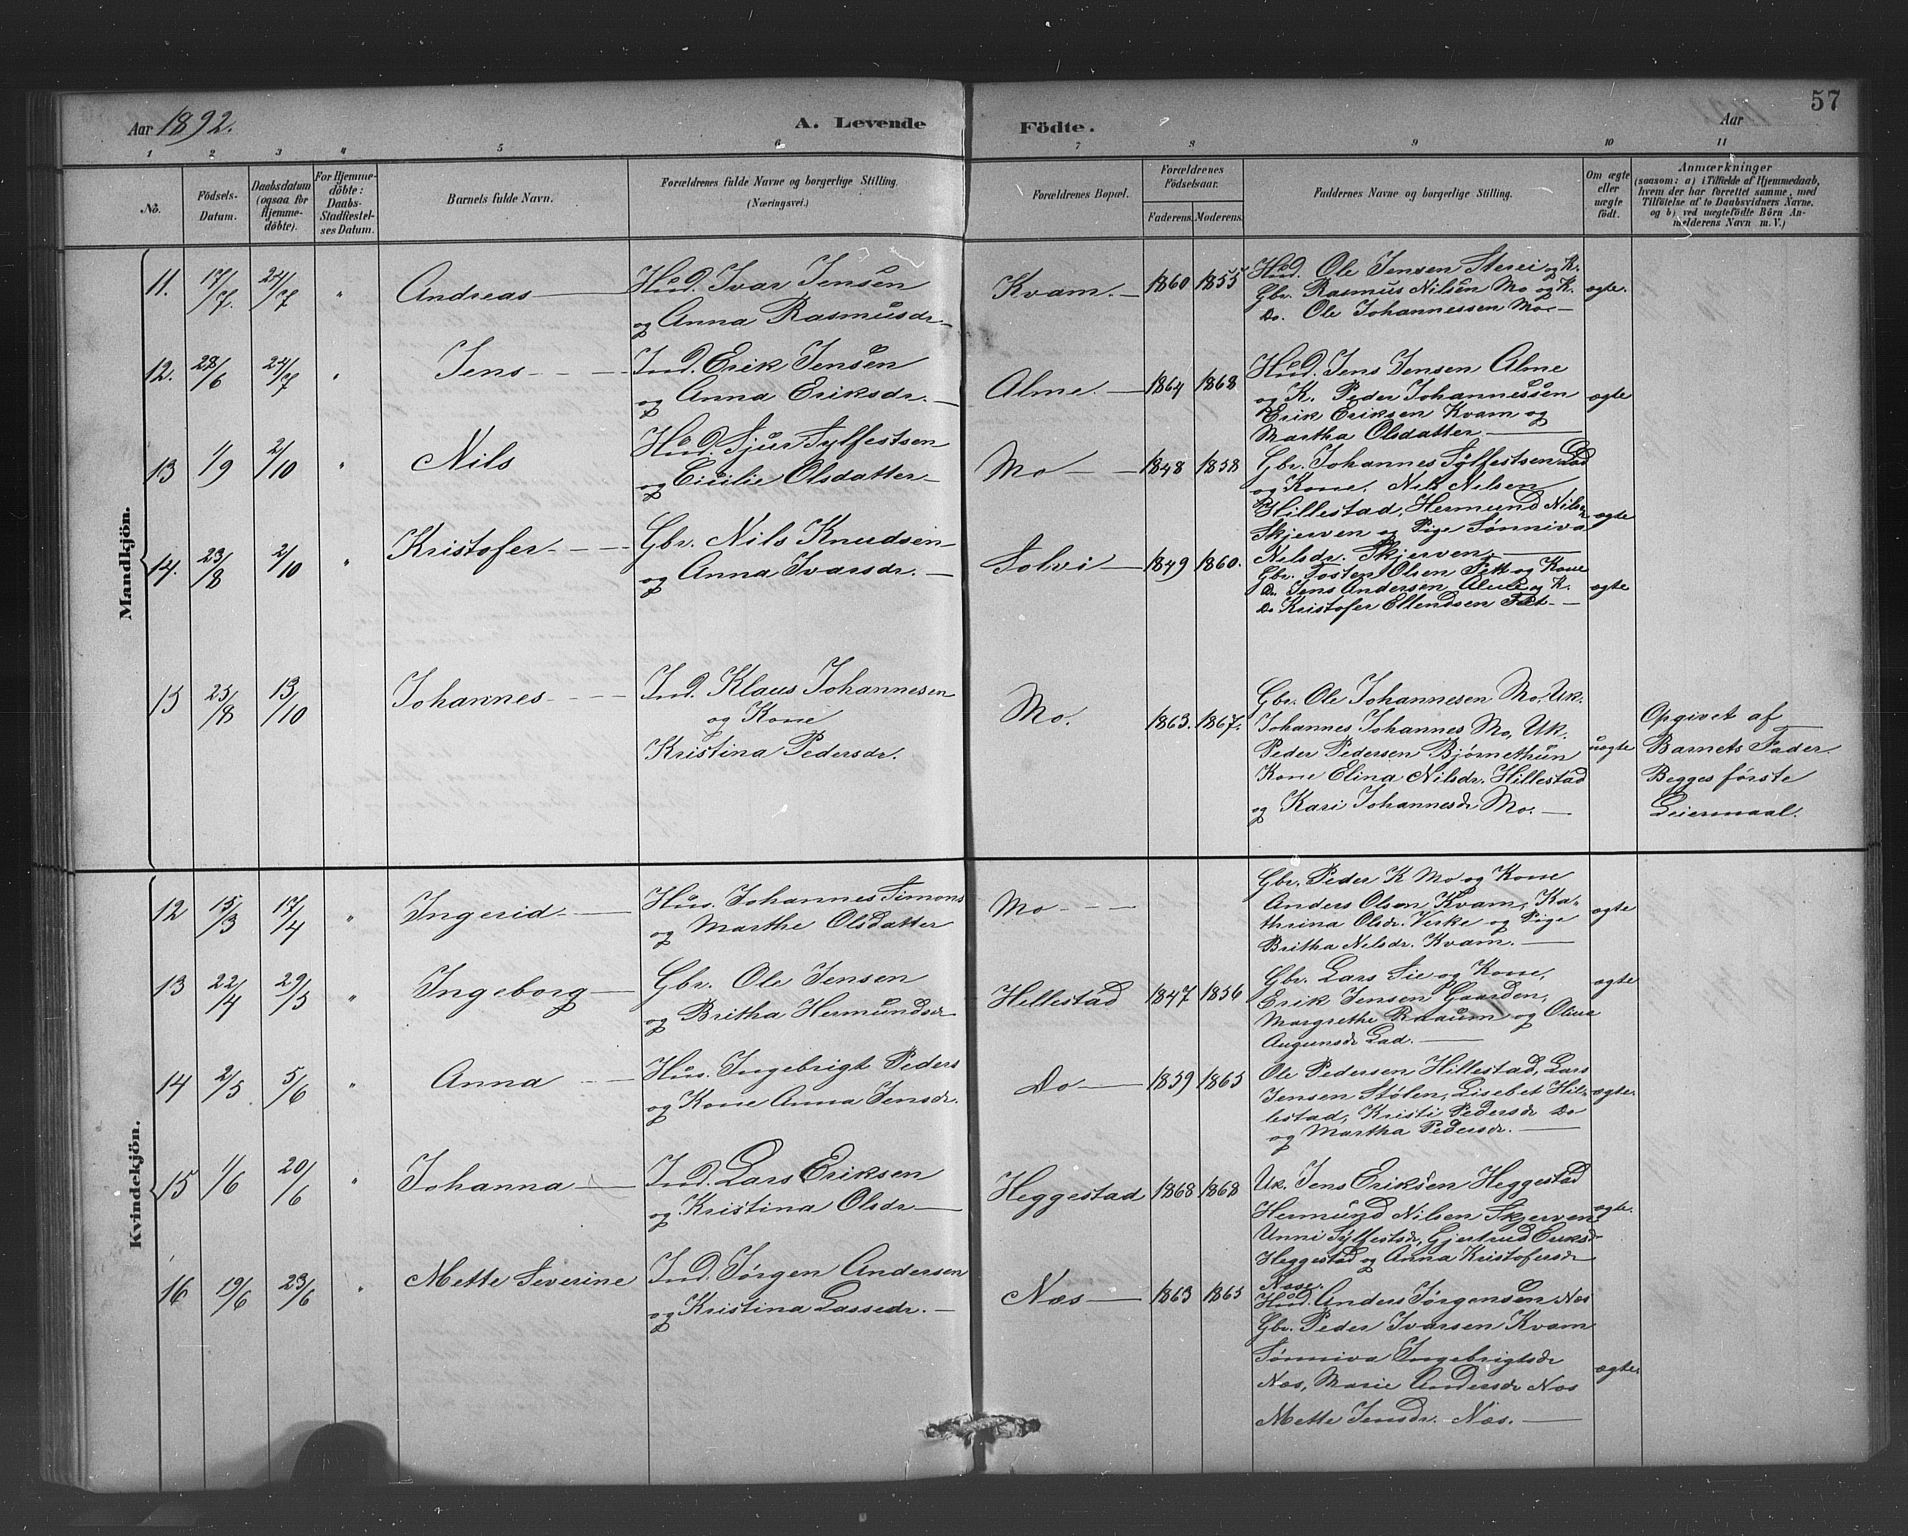 Aar 1892.
A. Levende Födte.
Aar
57
1 2 3 4 5 6 7 8 9 10 11
No.
Födsels-Datum.
Daabsdatum (ogsaa for Hjemme-döbte).
For Hjemme-döbte: Daabs-Stadfæstel-ses Datum.
Barnets fulde Navn.
Forældrenes fulde Navne og borgerlige Stilling. (Næringsvei.)
Forældrenes Bopæl.
Forældrenes Födselsaar.
Faderens. Moderens.
Faddernes Navne og borgerlige Stilling.
Om ægte eller uægte födt.
Anmærkninger
(saasom: a) i Tilfælde af Hjemmedaab,
hvem der har forrettet samme, med
Tilföielse af to Daabsvidners Navne,
og b) ved uægtefödte Börn An-
melderens Navn m. V.)
Mandkjön.
11. 17/7. 24/7 " Andreas
Husd. Ivar Jensen
og Anna Rasmusdr.
Kvam. 1860 1855
Husd. Ole Jensen Sterei og K.
Gbr. Rasmus Nilsen Mo og K.
Do. Ole Johannessen Mo.
ægte.
12. 28/6 24/7 " Jens
Ind. Erik Jensen
og Anna Eriksdr.
Alme. 1864 1868
Husd. Jens Jensen Alme
og K. Peder Johannessen
Erik Eriksen Kvam og
Martha Olsdatter
ægte
13 1/9 2/10 " Nils
Husd. Sjur Sylfestsen
og Cicilie Olsdatter
Mo 1848 1858
Gbr. Johannes Sylfestsen Lad
og Kone. Nils Nilsen
Hillestad, Hermund Nilsen
Skjerven og Pige Sønniva
Nilsdr. Skjerven
ægte
14. 23/8 2/10 " Kristofer
Gbr. Nils Knudsen
og Anna Ivarsdr.
Solvi 1849 1860.
Gbr. Tosten Olsen og Kone
Do Jens Andersen Alme og K.
Do Kristofer Ellendsen
ægte
15 25/8 13/10 Johannes
Ind. Klaus Johannesen
og Kone
Kristina Pedersdr.
Mo. 1863. 1867.
Gbr. Ole Johannesen Mo, Uk.
Johannes Johannes Mo, Uk.
Peder Pedersen Bjørnethun
Kone Elina Nilsdr. Hillestad
og Kari Johannesdr Mo.
uægte
Opgivet af
Barnets Fader
Begges første
Leiermaal.
Kvindekjön.
12 15/3 17/4 " Ingerid
Hus. Johannes Simons
og Marthe Olsdatter
Mo
Gbr. Peder K Mo og Kone
Anders Olsen Kvam, Ka-
thrina Olsdr. Verke og Pige
Britha Nilsdr. Kvam.
ægte
13 22/4 29/5 " Ingeborg
Gbr. Ole Jensen
og Britha Hermundsdr
Hillestad 1847 1856
Gbr. Lars Sie og Kone,
Erik Jensen Gaarden,
Margrethe Raaum og Oline
Augunsdr Lad.
ægte
14 2/5 5/6 " Anna
Hus. Ingebrigt Peders
og Kone Anna Jensdr.
Do 1859 1865
Ole Pedersen Hillestad, Lars
Jensen Stølen, Lisebet Hil-
lestad, Kristi Pedersdr Do
og Martha Pedersdr.
ægte.
15 1/6 20/6 " Johanna
Ind. Lars Eriksen
og Kristina Olsdr.
Heggestad 1868 1868
Uk. Jens Eriksen Heggestad
Hermund Nilsen Skjerven
Unni Sylfestdr, Gjertrud Eriksd
Heggestad og Anna Kristofersdr
Næse.
ægte.
16 19/6 23/6 " Mette Severine
Ind. Jørgen Andersen
og Kristina Lassedr.
Næs 1863 1865
Husd. Anders Jørgensen Næs
Gbr. Peder Ivarsen Kvam
Sønniva Ingebrigtsdr
Næs, Marie Andersdr Næs
Mette Jensdr. Næs.
ægte